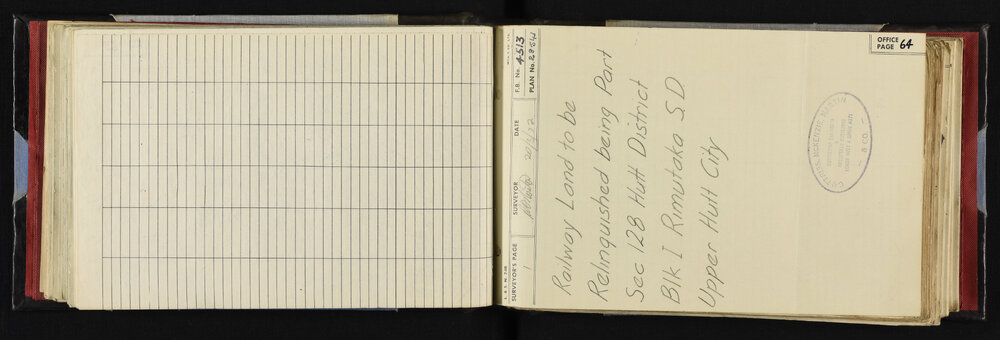 OFFICE
PAGE 64
L. & S. N.
SURVEYOR'S PAGE
1
SURVEYOR
DATE
F.B. No. 4513
PLAN No.
Railway Land to be
Relinquished being Part
Sec 128 Hutt District
Blk I Rimutaka S.D
Upper Hutt City
McKENZIE MARTIN
& CO.